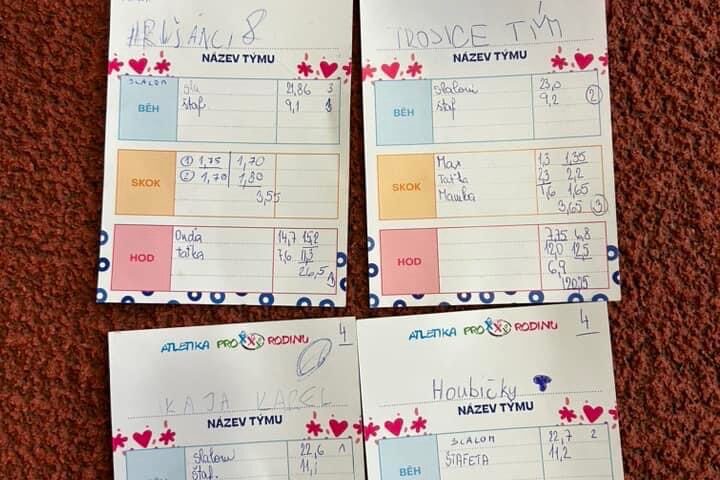 #RUŠÁNCI 8
NÁZEV TÝMU
SLALOM 21,86 3
BĚH štaf. 9,1
SKOK
① 1,75 1,70
② 1,70 1,80
3,55
HOD
Onďa 14,7 15,2
taťka 7,6 11,3
26,5
TROJICE TÝM
NÁZEV TÝMU
BĚH
slalom 23,0
štaf 9,2 ②
SKOK
Max 1,3 1,35
Taťka 2,3 2,2
Mamka 1,6 1,65
3,65 ③
HOD
7,75 6,8
12,0 12,5
6,9
ATLETIKA PRO RODINU 4
KAJA KAREL
NÁZEV TÝMU
slalom 22,6 1
štaf.
ATLETIKA PRO RODINU 4
Houbičky
NÁZEV TÝMU
SLALOM 22,7 2
BĚH ŠTAFETA 11,2